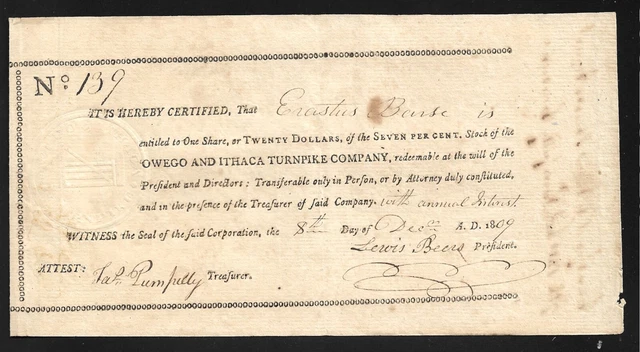 No. 139
IT IS HEREBY CERTIFIED, That Erastus Barse is
entitled to One Share, or TWENTY DOLLARS, of the SEVEN PER CENT. Stock of the
OWEGO AND ITHACA TURNPIKE COMPANY, redeemable at the will of the
President and Directors: Transferable only in Person, or by Attorney duly constituted,
and in the presence of the Treasurer of said Company. with annual Interest.
WITNESS the Seal of the said Corporation, the 8th Day of Decr. A. D. 1809
Lewis Beers President.
ATTEST: Jas. Pumpelly Treasurer.